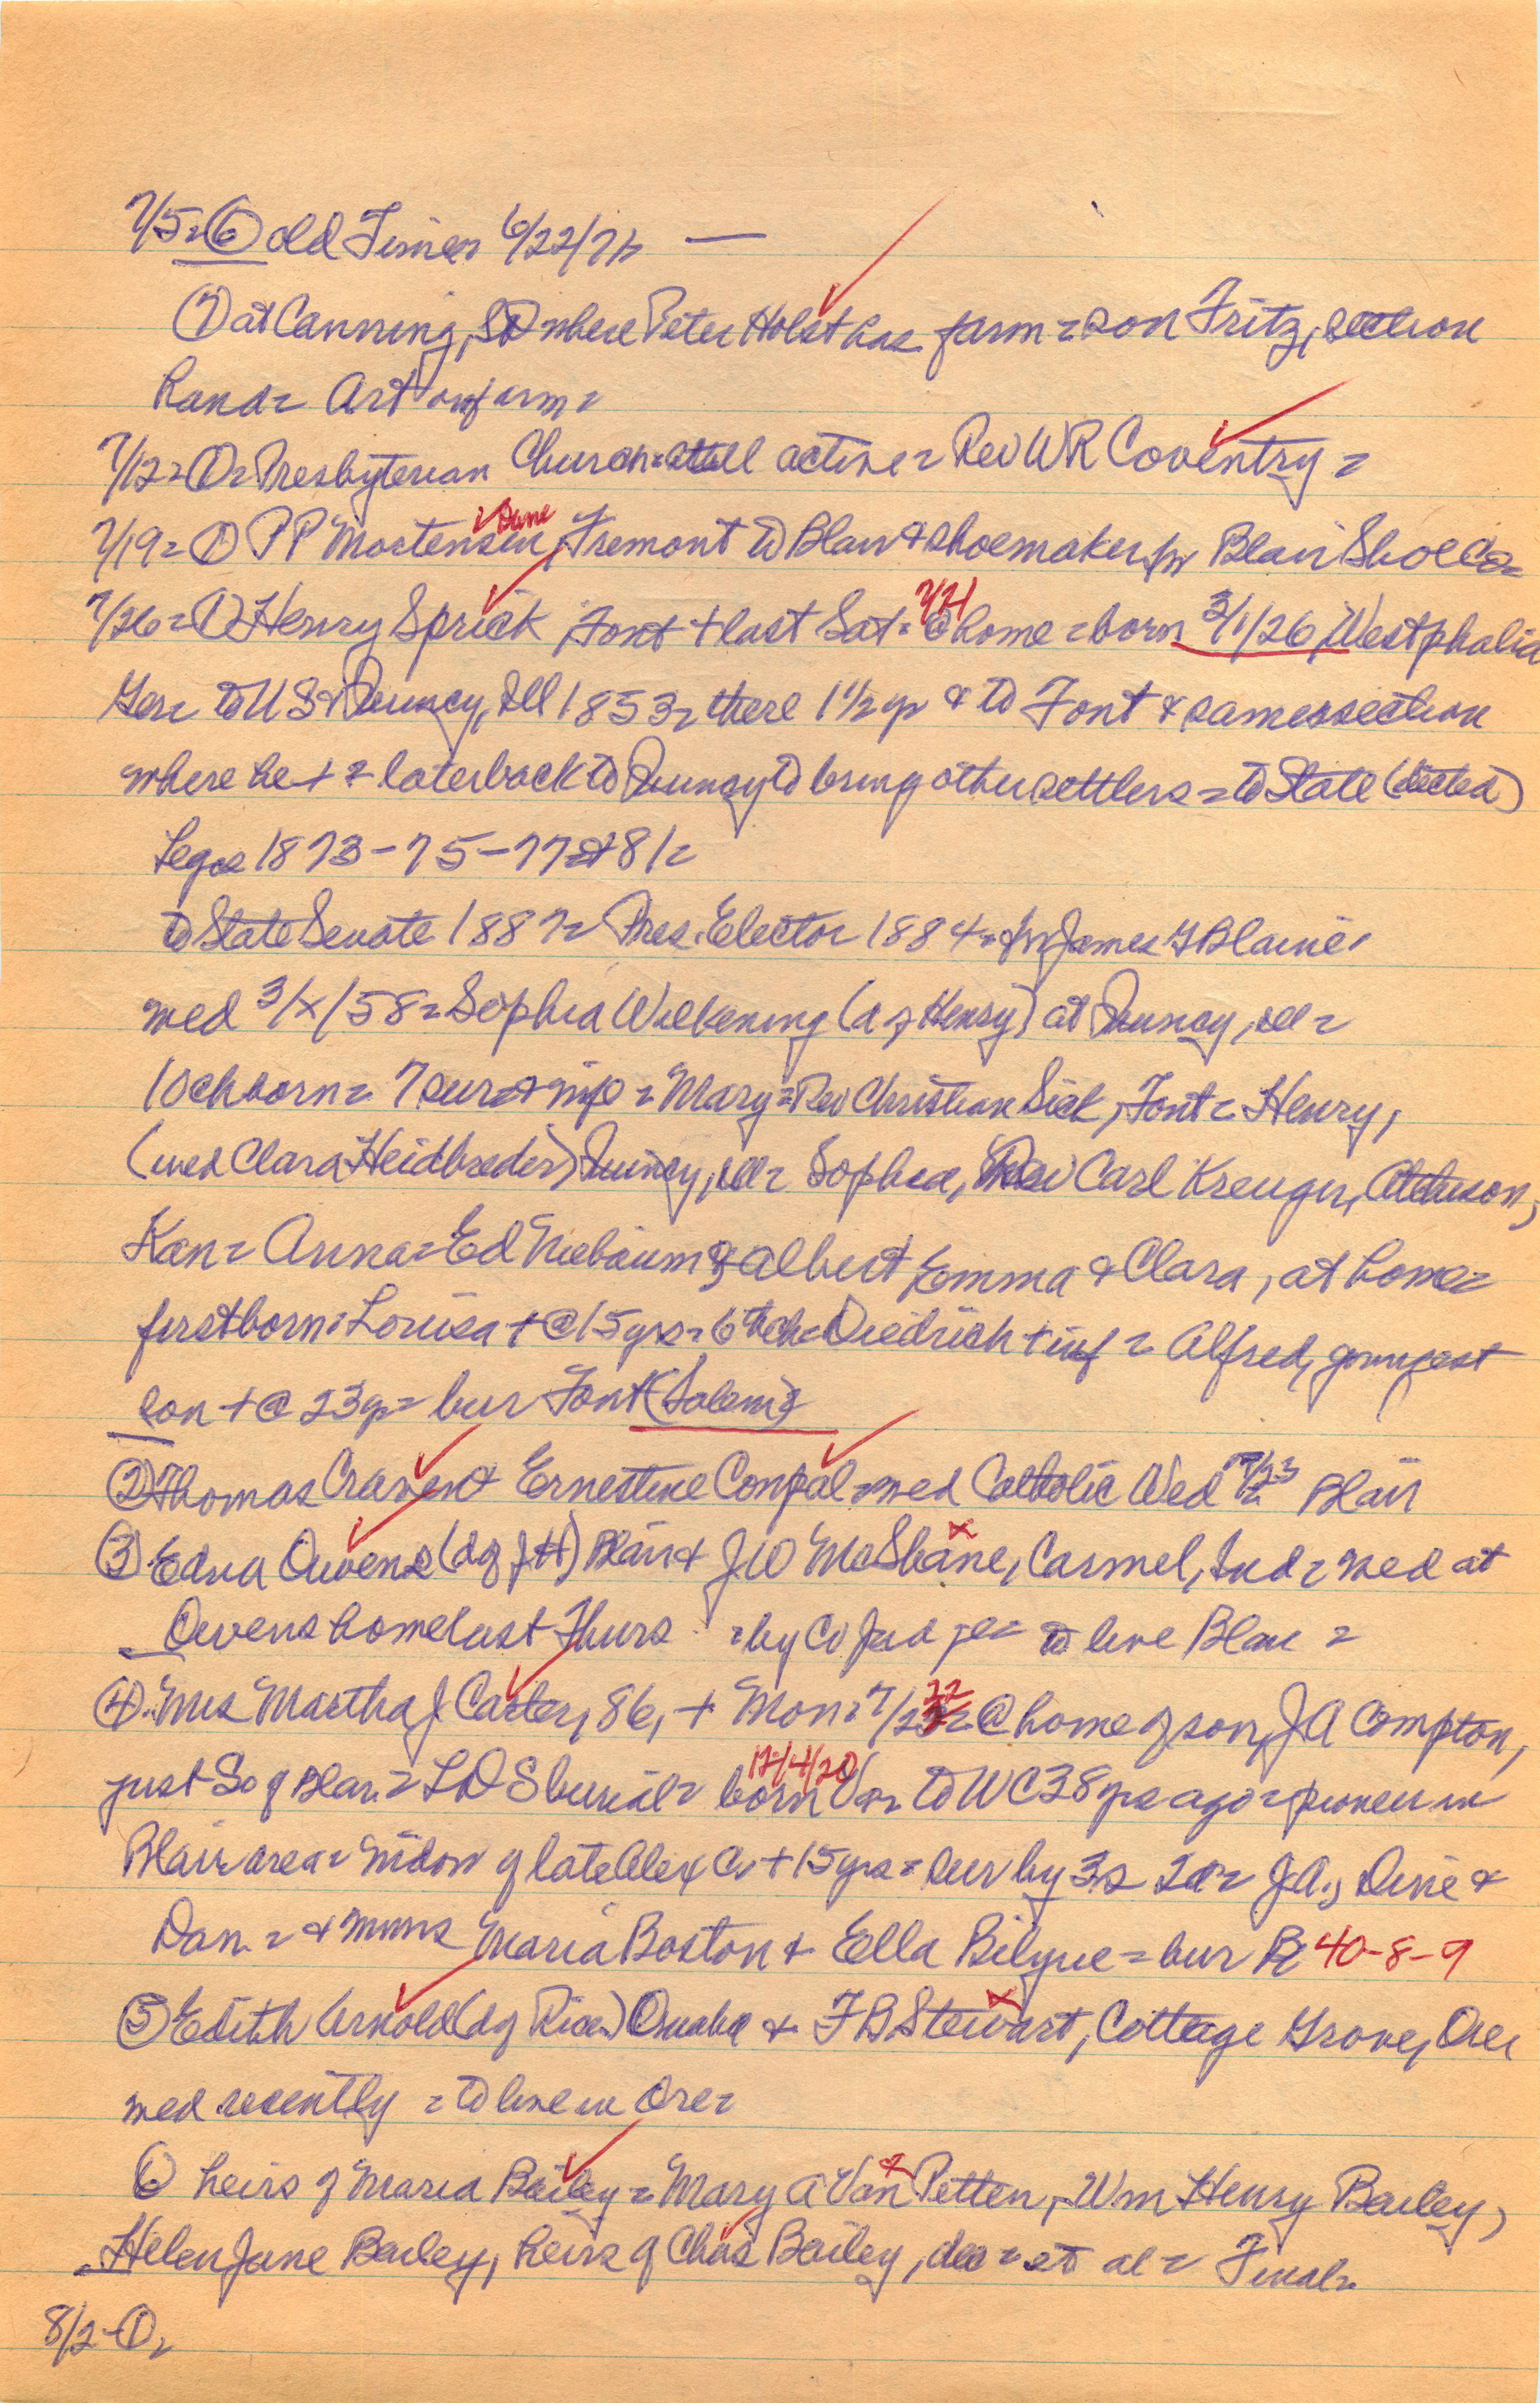 7/5= ⑥ Old Timer 6/22/76 —
⑦ at Canning, SD where Peter Holst has farm = son Fritz, section
hand = Art on farm =
7/12= ① = Presbyterian Church = still active = Rev WR Coventry =
7/19= ① PP Mortensen, Dane, Fremont to Blair & shoemaker for Blair Shoe Co =
7/26= ① Henry Sprick, Font + last Sat = 7/21 @ home = born 3/1/26, Westphalia
Ger = to US & Quincy, Ill 1853 = there 1 1/2 yr & to Font & same section
where he + = later back to Quincy to bring other settlers = to State (elected)
Legs 1873-75-77 & 81 =
to State Senate 1887 = Pres. Elector 1884 = for James G Blaine,
med 3/x/58 = Sophia Wilkening (d of Henry) at Quincy, Ill =
10 ch born = 7 sur & wife = Mary = Rev Christian Sick, Font = Henry,
(med Clara Heidbreder) Quincy, Ill = Sophia, Rev Carl Kreuger, Atchison,
Kan = Anna = Ed Niebaum & Albert, Emma & Clara, at home =
first born: Louisa + @ 15 yrs = 6th ch = Diedrich + inf = Alfred, youngest
son + @ 23 yr = bur Font (Salem)
② Thomas Craven & Ernestine Compal = med Catholic Wed Blair
③ Edna Owens (dg JH) Blair & JW McShane, Carmel, Ind = med at
Owens home last Thurs = by Co Judge = to live Blair =
④ Mrs Martha J Carter, 86, + Mon = 7/22 @ home of son, JA Compton,
just So of Blair = LDS burial = born 12/4/20 Va = to WC 38 yrs ago = pioneer in
Blair area = widow of late Alex C + 15 yrs = sur by 3s 2d = JA, &
Dan = & mmes Maria Boston & Ella Bilyue = bur Bl 40-8-9
⑤ Edith Arnold (dg Rice) Omaha & FB Stewart, Cottage Grove, Ore
med recently = to live in Ore =
⑥ heirs of Maria Bailey = Mary A Van Petten, Wm Henry Bailey,
Helen Jane Bailey, heirs of Chas Bailey, dec = et al = Final =
8/2- ① =